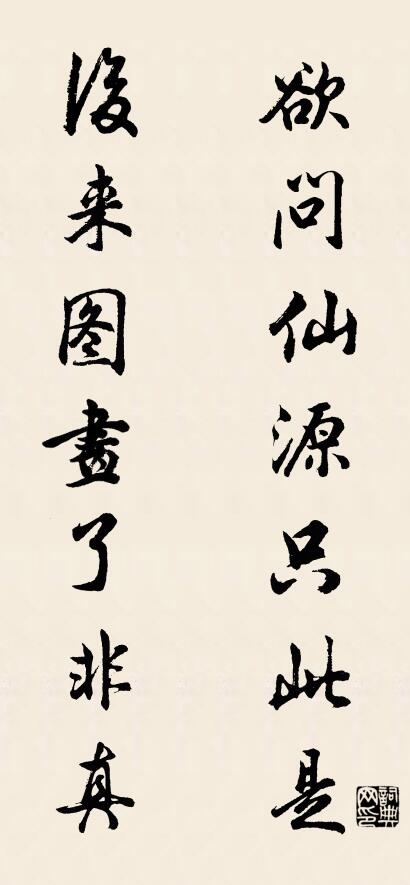 欲问仙源只此是
後来图畫了非真
詞典网印